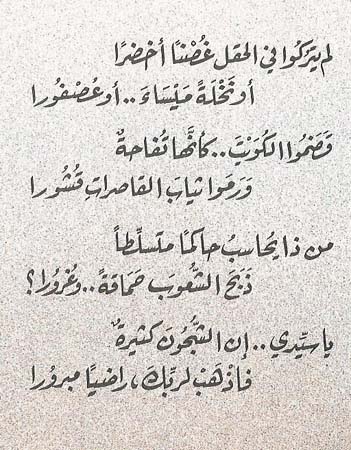 لم يتركوا في الحقل غُصْنًا أخضرًا
أو نَخْلَةً مَيْسَاءَ .. أو عُصْفُورا
قَضَمُوا الكُوَيْتَ .. كأنَّها تُفاحةٌ
وَرَمَوا ثيابَ القاصراتِ قُشُورا
من ذا يُحَاسبُ حاكمًا متسلِّطاً
ذَبَحَ الشُّعوبَ حَماقةً .. وغُرُورا؟
يا سيِّدي .. إن الشُّجُونَ كثيرَةٌ
فاذْهَبْ لربِّكَ، راضيًا مبرُورا